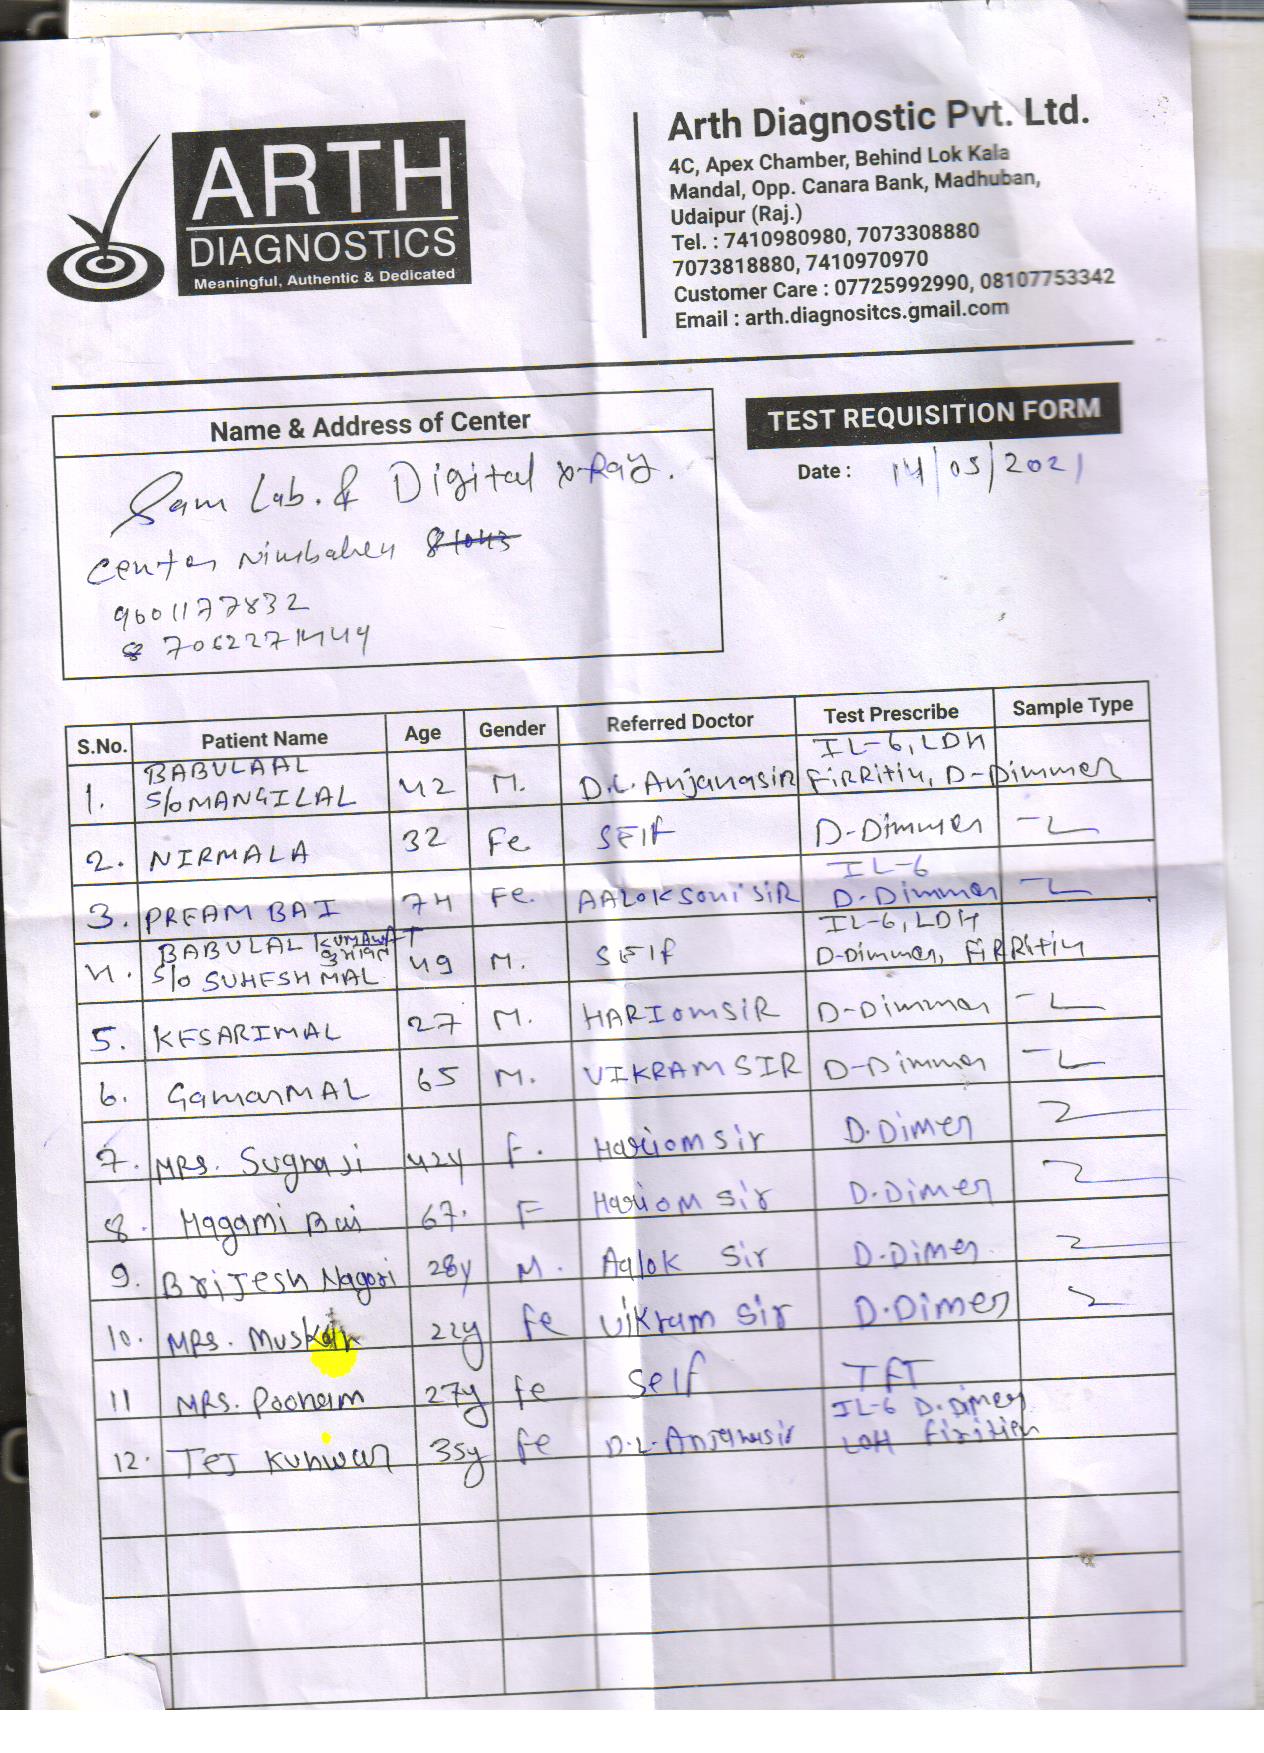 ARTH
DIAGNOSTICS
Meaningful, Authentic & Dedicated
Arth Diagnostic Pvt. Ltd.
4C, Apex Chamber, Behind Lok Kala
Mandal, Opp. Canara Bank, Madhuban,
Udaipur (Raj.)
Tel. : 7410980980, 7073308880
7073818880, 7410970970
Customer Care : 07725992990, 08107753342
Email : arth.diagnositcs.gmail.com
Name & Address of Center
Sam Lab. & Digital x-Ray.
Center Nimbahey
9601177832
706227144
TEST REQUISITION FORM
Date : 14/05/2021
S.No. Patient Name Age Gender Referred Doctor Test Prescribe Sample Type
1. BABULAAL S/o MANGILAL 42 M. D.L. Anjanasir IL-6, LDH FiRRitin, D-Dimmer
2. NIRMALA 32 Fe. SElf D-Dimmer
3. PREAM BAI 74 Fe. AALOK SONI SIR IL-6 D-Dimmer
4. BABULAL KUMAWAT कुमावत S/o SUHESHMAL 49 M. SElf IL-6, LDH D-Dimmer, FiRRitin
5. KESARIMAL 27 M. HARIOM SIR D-Dimmer
6. GamarMAL 65 M. VIKRAM SIR D-Dimmer
7. MRS. Sugna Ji 42y F. Hariom Sir D.Dimer
8. Hagami Bai 67. F Hariom Sir D.Dimer
9. Brijesh Nagori 28y M. Aalok Sir D.Dimer
10. MRS. Muskan 22y fe Vikram Sir D.Dimer
11 MRS. Poonam 27y fe Self TFT
12. Tej Kunwar 35y fe D.L. Anjanasir IL-6 D.Dimer LDH firitien